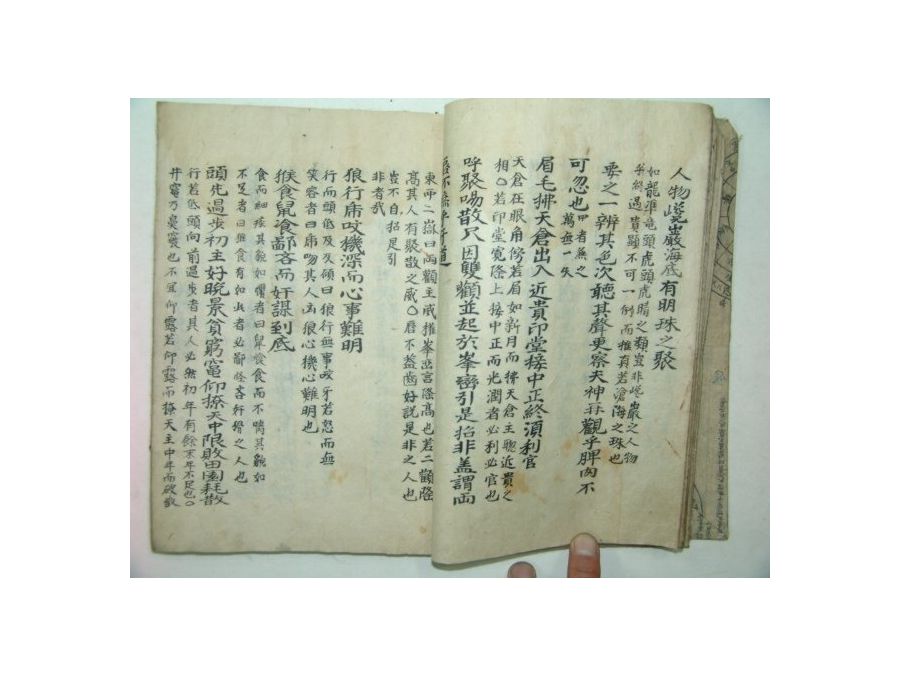 人物巉巖海底有明珠之聚
如龍準竜頭虎頭虎睛之類豈非巉巖之人物
終遇貴顯不可一例而推真若滄海之珠也
要之一辨其色次聽其聲更察天神再觀乎脾肉不
可忽也 甲者無之
萬無一失
眉毛拂天倉出入近貴印堂接中正終須利官
天倉在眼角傍若眉如新月而彿天倉主聰近貴之
相〇若印堂寬隆上接中正而光潤者必利必官也
呼聚喝散只因雙顴並起於峯巒引是招非盖謂両
東西二嶽曰両顴主戒推峯巒言隆高也若二顴隆
高其人有聚散之威〇唇不盖齒好說是非之人也
豈不自招足引
非者哉
狼行虎吹機深而心事難明
行而頭低及及傾曰狼行無事咬牙若怒而無
笑容者曰虎吻其人凶狼心機心難明也
猴食鼠飡鄙吝而奸謀到底
食而細疾其貌如懼者曰鼠飡食而不鳴其貌如
不足者曰猴食有如此者必鄙吝行險之人也
頭先過步初主好晩景貧窮竃仰撩天中限敗田園耗散
行若低頭向前過步者其人必然初年有餘末年不足也〇
井竃乃鼻竅也不宜仰露若仰露而撩天主中年而破敗